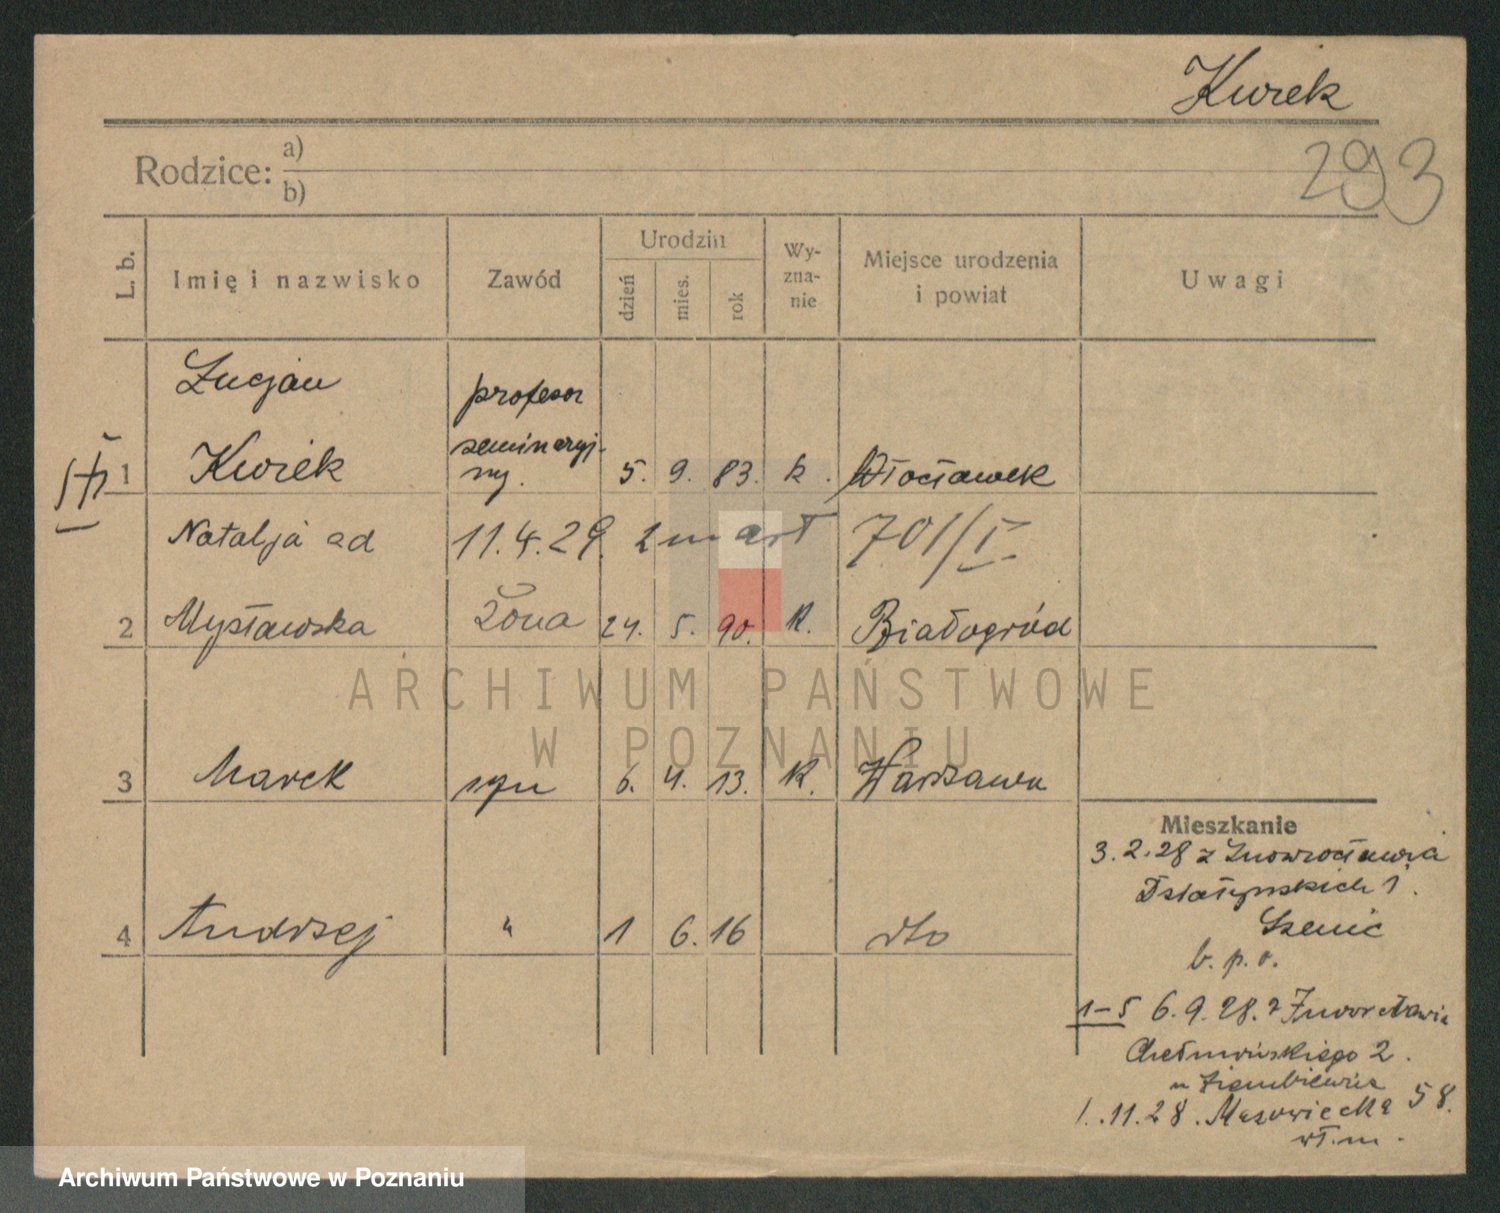 Kwiek
293
Rodzice: a)
b)
L. b.
Imię i nazwisko
Zawód
Urodzin
dzień
mies.
rok
Wy-
zna-
nie
Miejsce urodzenia
i powiat
Uwagi
Lucjan
profesor
seminaryj-
1 Kwiek ny. 5. 9. 83. k. Włocławek
Natalja ad 11.4.29. zmarł 701/I
2 Mysławska żona 24. 5. 90. k. Białogród
ARCHIWUM PAŃSTWOWE
W POZNANIU
3 Marek syn 6. 4. 13. k. Warszawa
Mieszkanie
3.2.28 z Inowrocławia
Działyńskich 1.
4 Andrzej " 1 6. 16 dto
b. p. o.
1-5 6.9.28. z Inowrocławia
Chełmońskiego 2.
1.11.28. Mazowiecka 58.
wł. m.
Archiwum Państwowe w Poznaniu